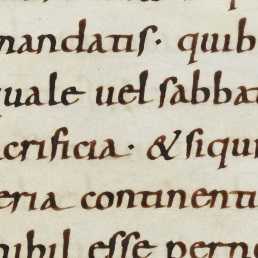 mandatis· quib
uale uel sabbat
crificia· & siqui
eria continenti
nihil esse perne